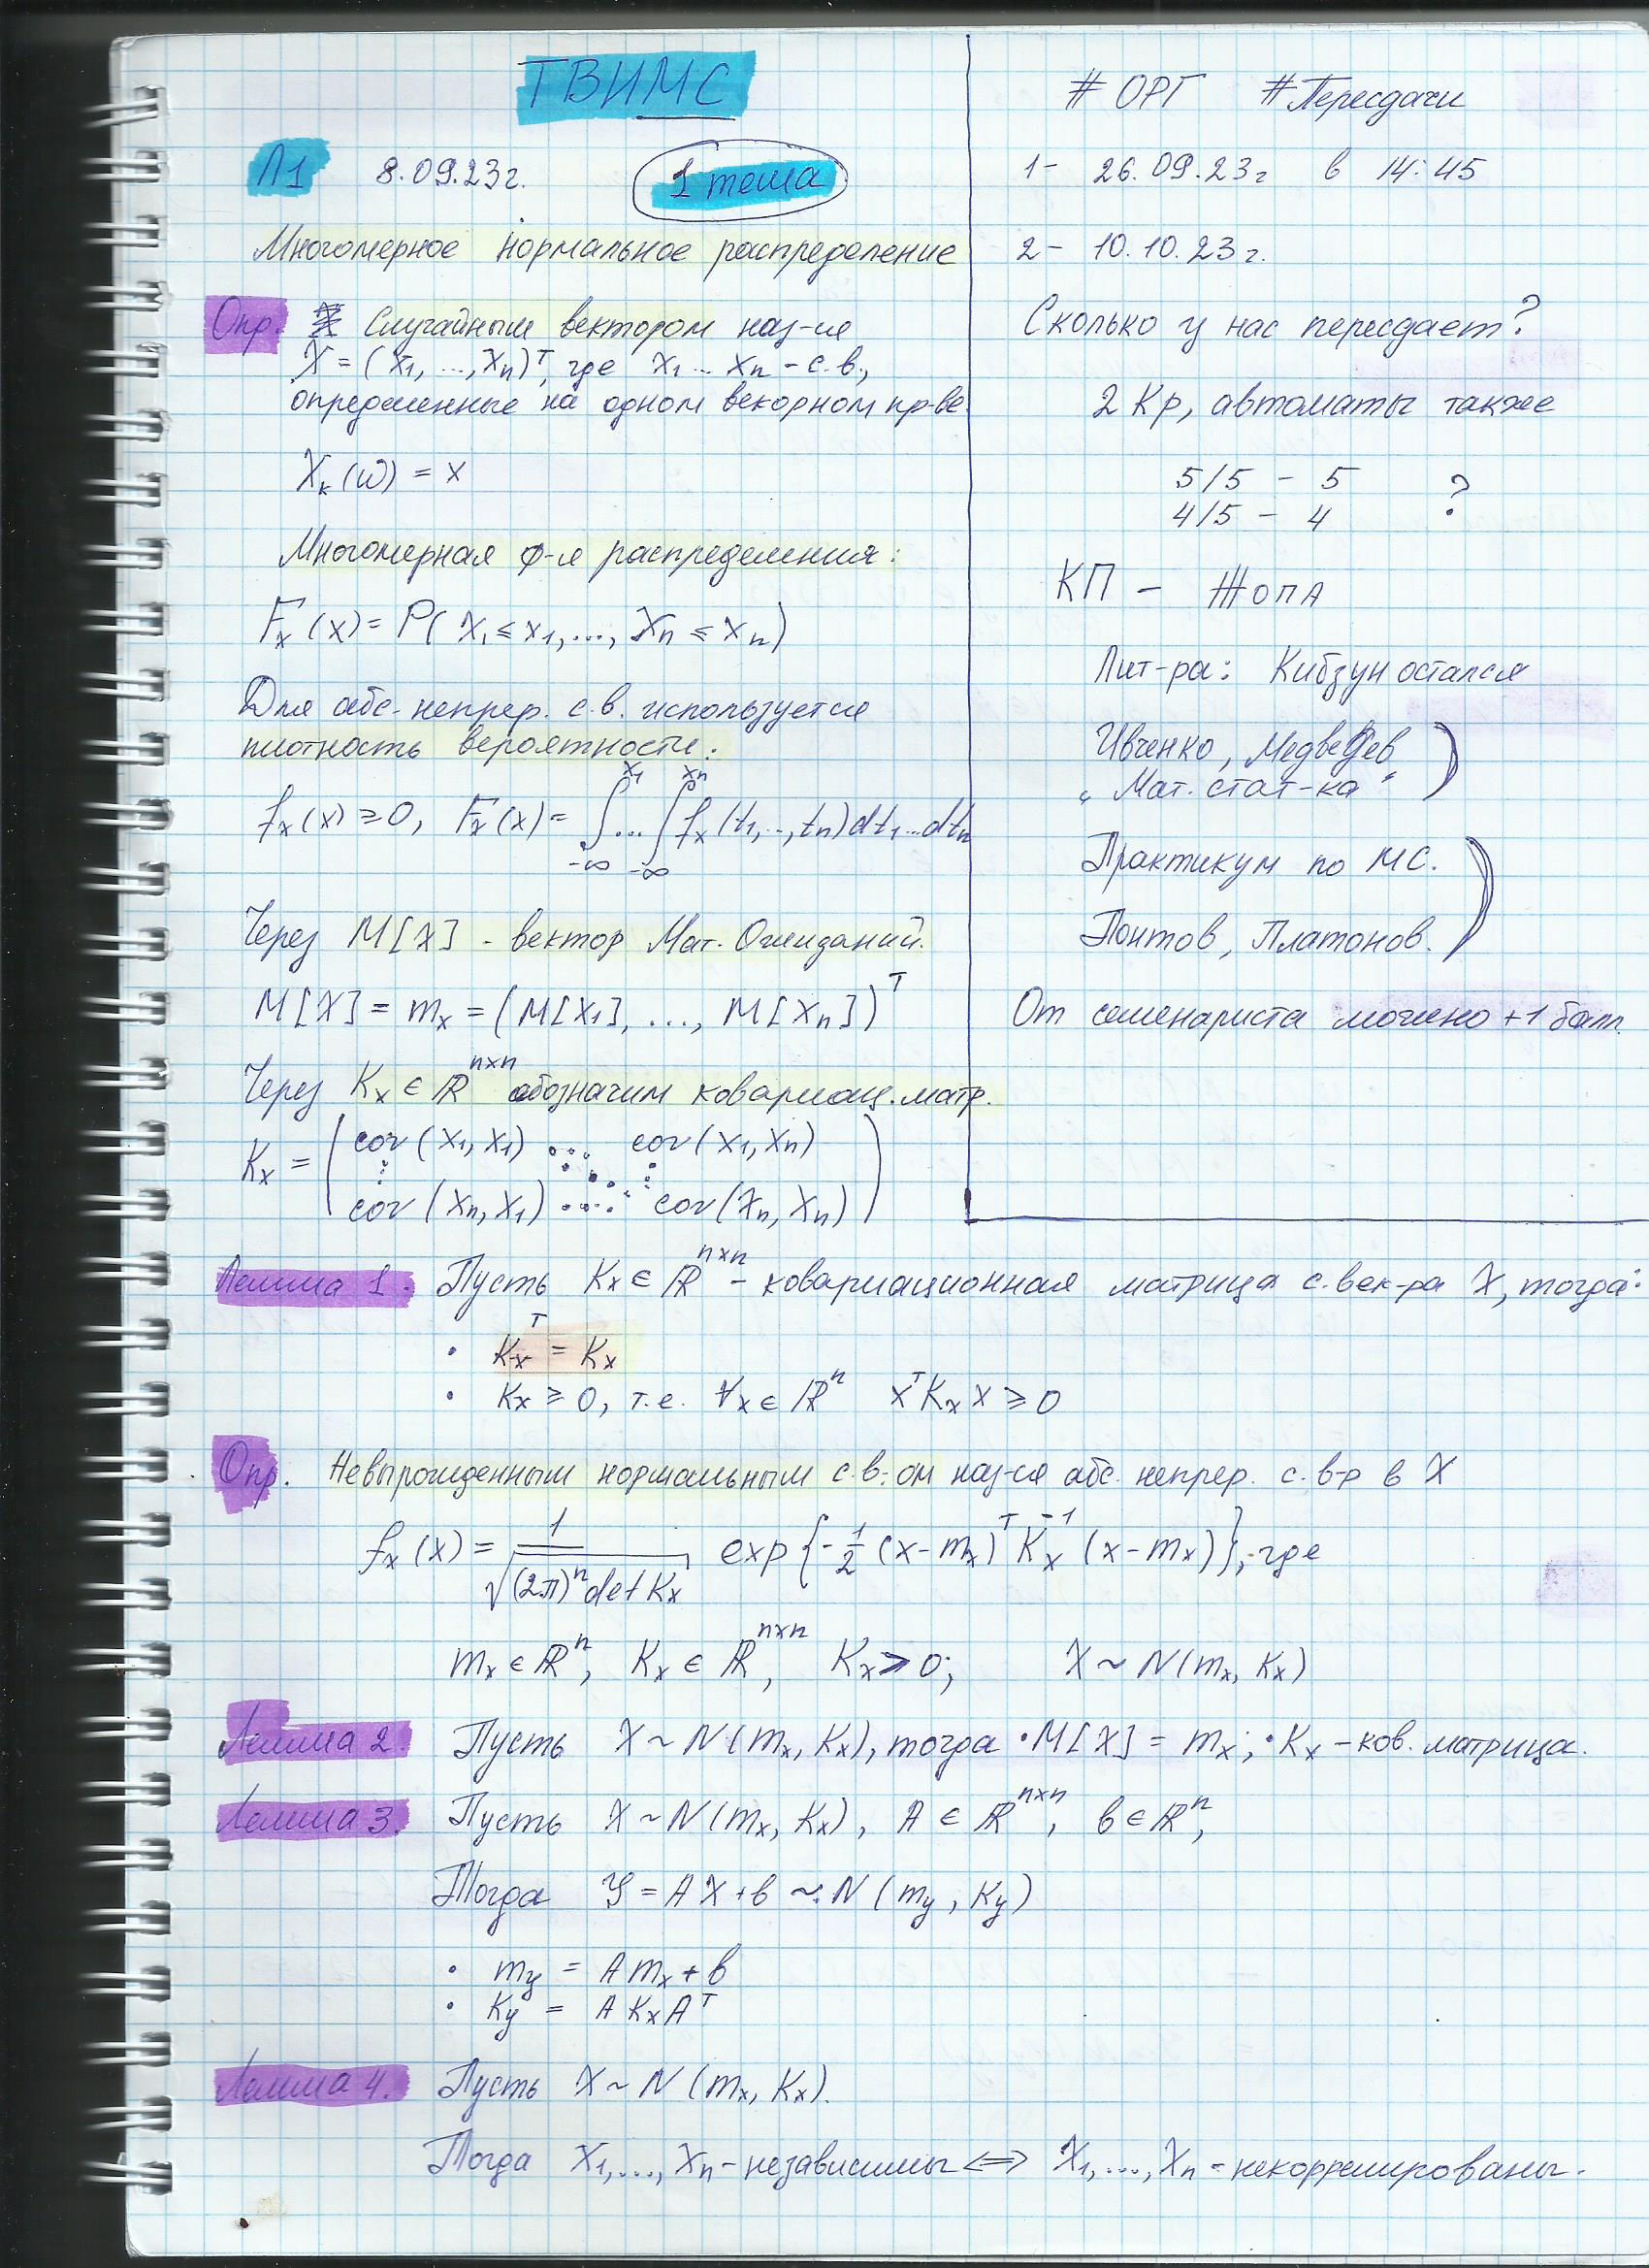 ТВИМС
Л1 8.09.23г. 1 тема
Многомерное нормальное распределение
Опр. Случайным вектором наз-ся
X = (X₁, ..., Xₙ)ᵀ, где X₁ ... Xₙ - с.в.,
определенные на одном векорном пр-ве.
Xₖ(ω) = x
Многомерная ф-я распределения:
Fₓ(x) = P(X₁ ≤ x₁, ..., Xₙ ≤ xₙ)
Для абс. непрер. с.в. используется
плотность вероятности:
fₓ(x) ≥ 0, Fₓ(x) = ∫_{-∞}^{x₁} ... ∫_{-∞}^{xₙ} fₓ(t₁, ..., tₙ) dt₁ ... dtₙ
Через M[X] - вектор Мат. Ожиданий.
M[X] = mₓ = (M[X₁], ..., M[Xₙ])ᵀ
Через Kₓ ∈ ℝⁿˣⁿ обозначим ковариац. матр.
Kₓ = ( cov(X₁, X₁) ... cov(X₁, Xₙ)
⋮ ⋱ ⋮
cov(Xₙ, X₁) ... cov(Xₙ, Xₙ) )
# ОРГ # Пересдачи
1- 26.09.23г в 14:45
2- 10.10.23г.
Сколько у нас пересдает?
2 Кр, автоматы также
5/5 - 5 ?
4/5 - 4
КП - ЖОПА
Лит-ра: Кибзун остался
Ивченко, Медведев
"Мат. стат-ка"
Практикум по МС.
Понтов, Платонов.
От семенариста можно +1 балл.
Лемма 1. Пусть Kₓ ∈ ℝⁿˣⁿ - ковариационная матрица с. век-ра X, тогда:
• Kₓᵀ = Kₓ
• Kₓ ≥ 0, т.е. ∀x ∈ ℝⁿ xᵀKₓx ≥ 0
Опр. Невырожденным нормальным с.в.-ом наз-ся абс. непрер. с. в-р в X
fₓ(x) = 1/√((2π)ⁿ det Kₓ) exp{-1/2 (x-mₓ)ᵀ Kₓ⁻¹ (x-mₓ)}, где
mₓ ∈ ℝⁿ, Kₓ ∈ ℝⁿˣⁿ, Kₓ > 0; X ~ N(mₓ, Kₓ)
Лемма 2. Пусть X ~ N(mₓ, Kₓ), тогда • M[X] = mₓ; • Kₓ - ков. матрица.
Лемма 3. Пусть X ~ N(mₓ, Kₓ), A ∈ ℝⁿˣⁿ, b ∈ ℝⁿ,
Тогда Y = AX + b ~ N(m_y, K_y)
• m_y = Amₓ + b
• K_y = AKₓAᵀ
Лемма 4. Пусть X ~ N(mₓ, Kₓ).
Тогда X₁, ..., Xₙ - независимы ⇔ X₁, ..., Xₙ - некоррелированы.